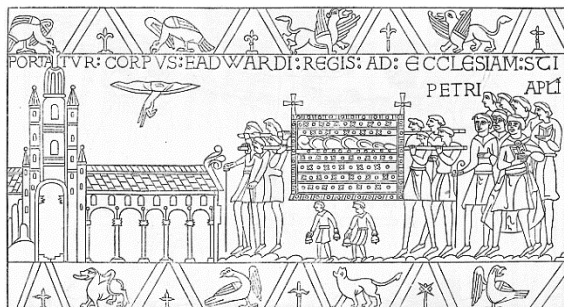 PORTATVR: CORPVS: EADWARDI: REGIS: AD: ECCLESIAM: SCI
PETRI APLI